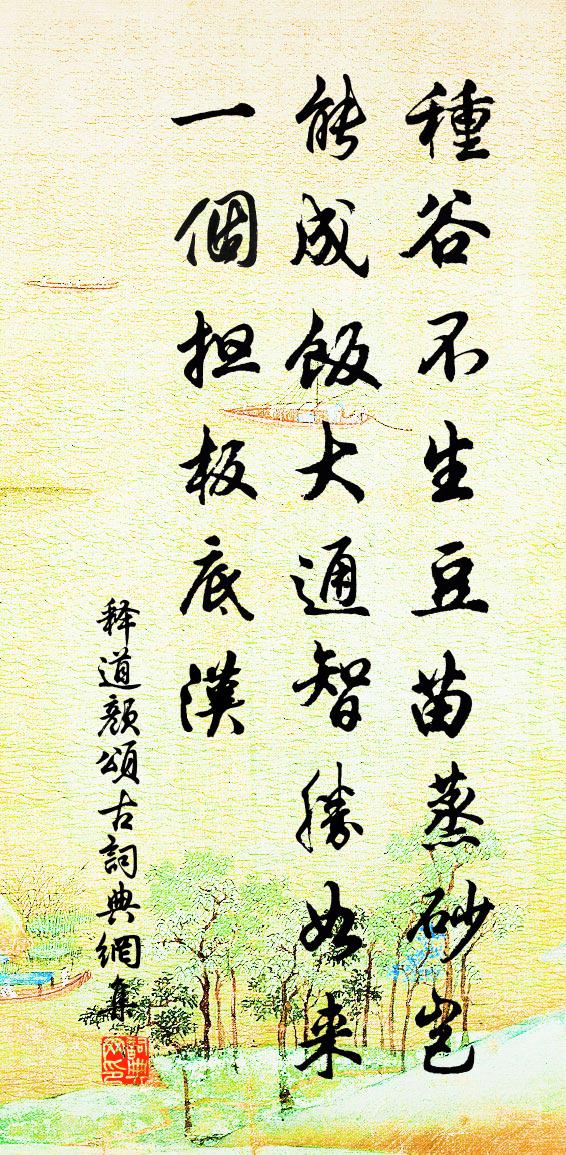 種谷不生豆苗蒸砂岂
能成飯大通智勝如来
一個担板底漢
释道颜頌古詞典網集